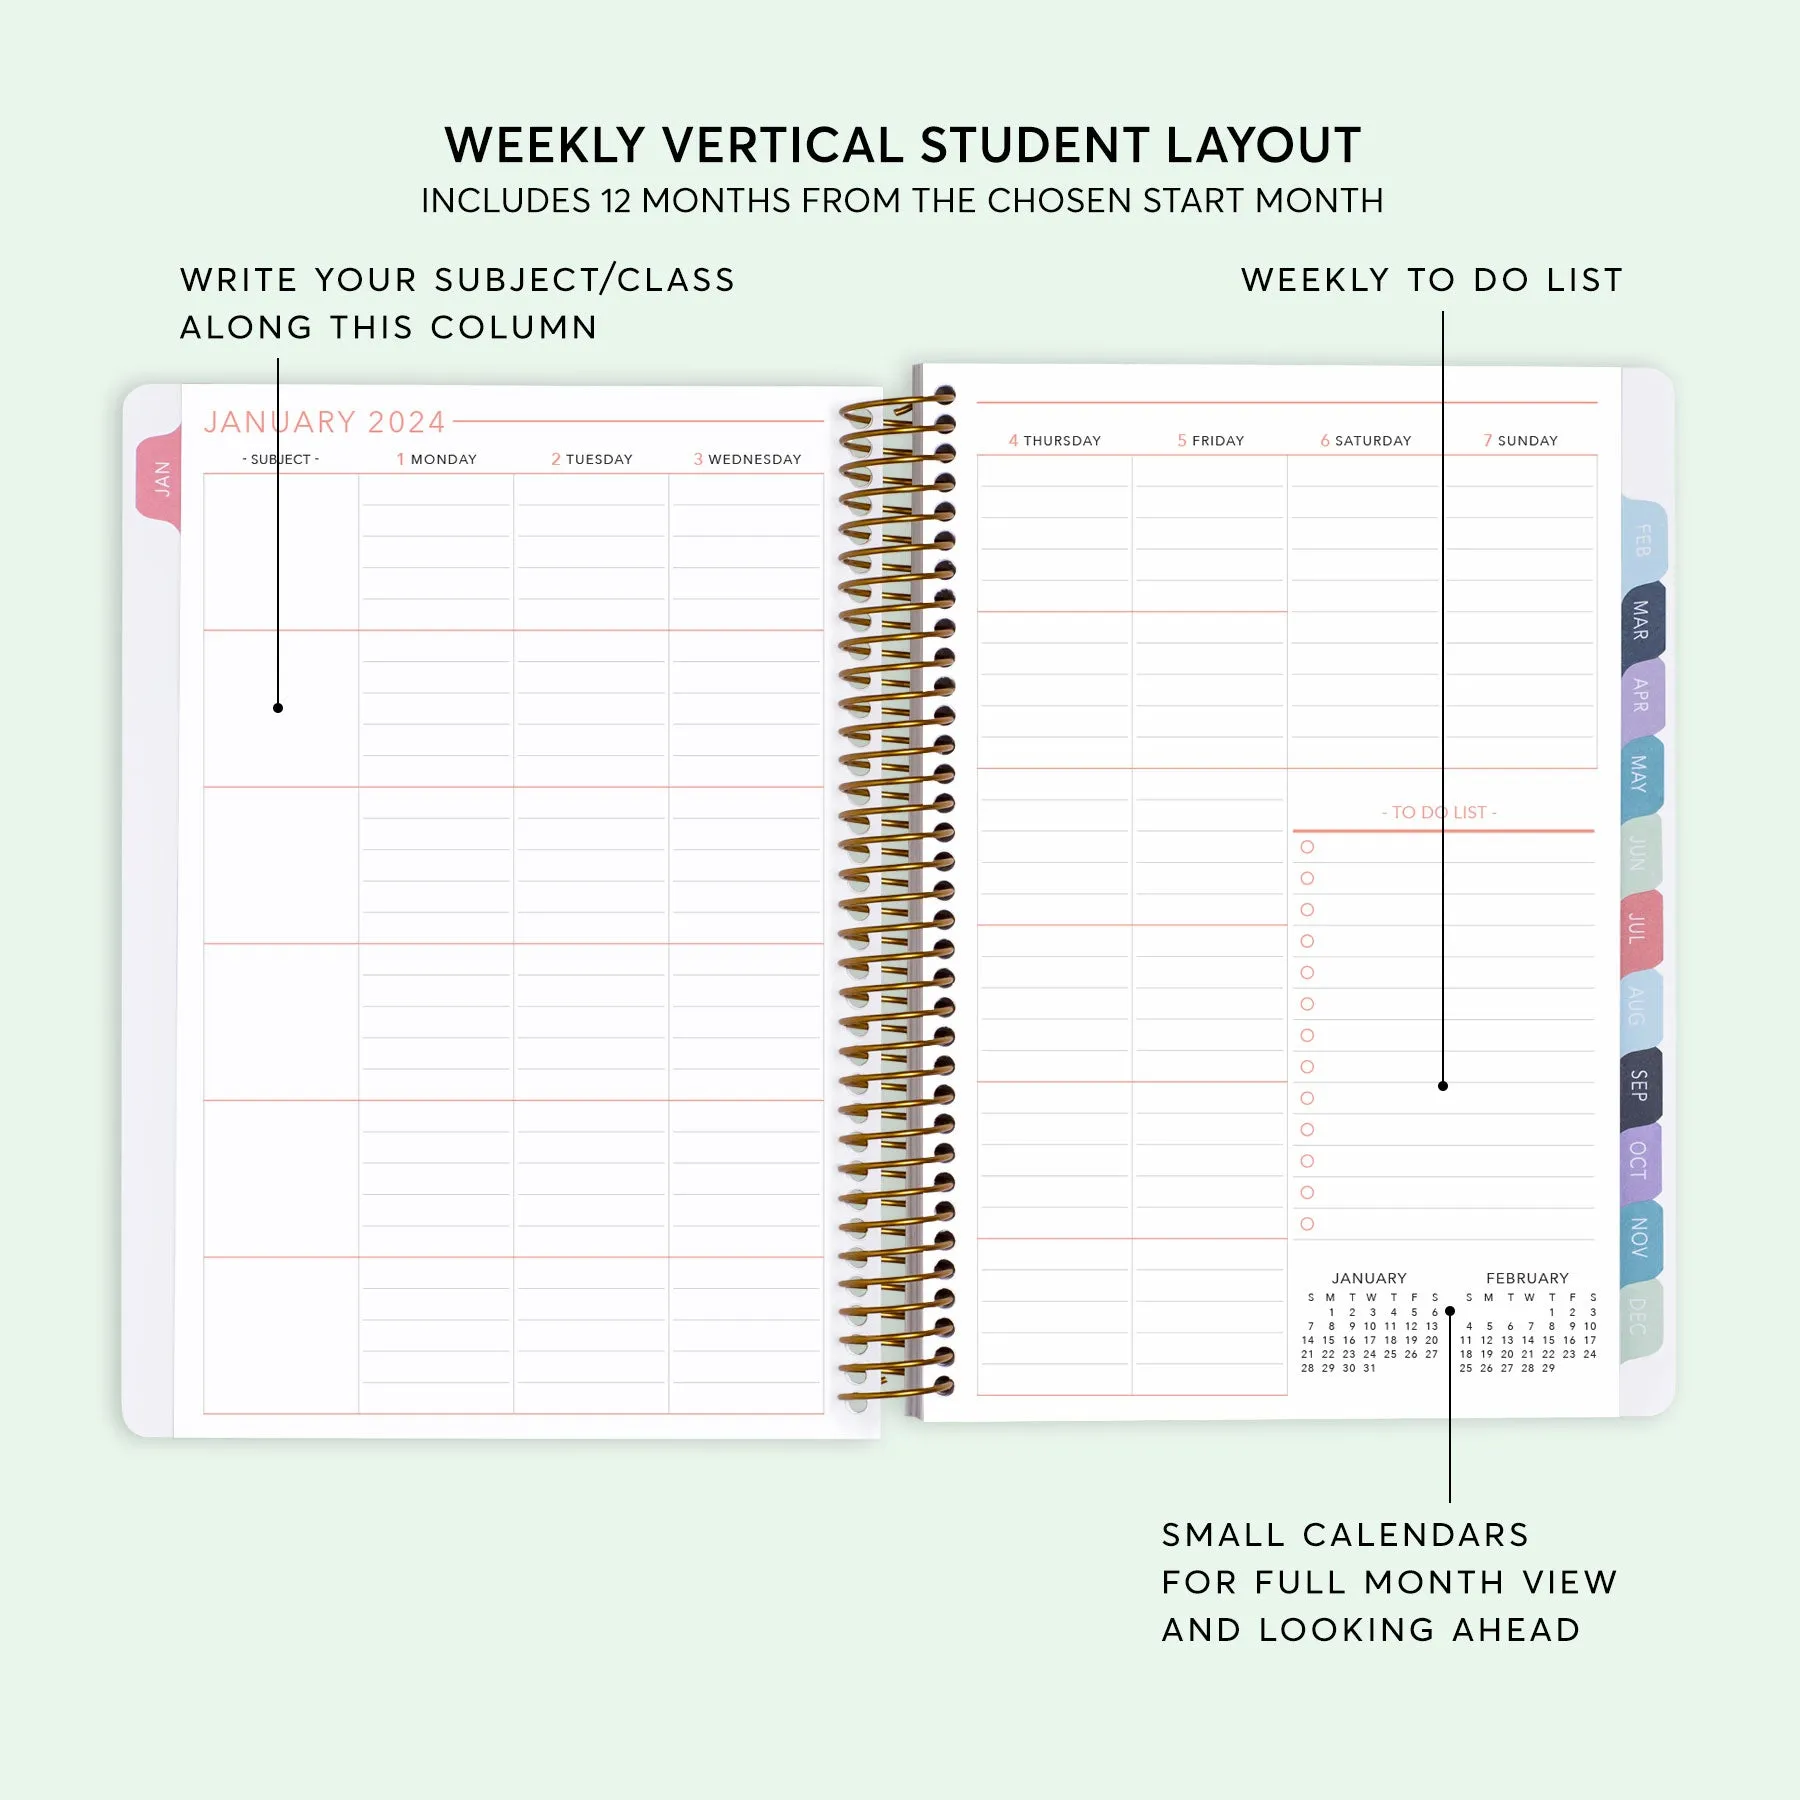 WEEKLY VERTICAL STUDENT LAYOUT
INCLUDES 12 MONTHS FROM THE CHOSEN START MONTH
WRITE YOUR SUBJECT/CLASS
ALONG THIS COLUMN
WEEKLY TO DO LIST
JANUARY 2024
- SUBJECT - 1 MONDAY 2 TUESDAY 3 WEDNESDAY
JAN
4 THURSDAY 5 FRIDAY 6 SATURDAY 7 SUNDAY
- TO DO LIST -
JANUARY
S M T W T F S
1 2 3 4 5 6
7 8 9 10 11 12 13
14 15 16 17 18 19 20
21 22 23 24 25 26 27
28 29 30 31
FEBRUARY
S M T W T F S
1 2 3
4 5 6 7 8 9 10
11 12 13 14 15 16 17
18 19 20 21 22 23 24
25 26 27 28 29
FEB
MAR
APR
MAY
JUN
JUL
AUG
SEP
OCT
NOV
DEC
SMALL CALENDARS
FOR FULL MONTH VIEW
AND LOOKING AHEAD